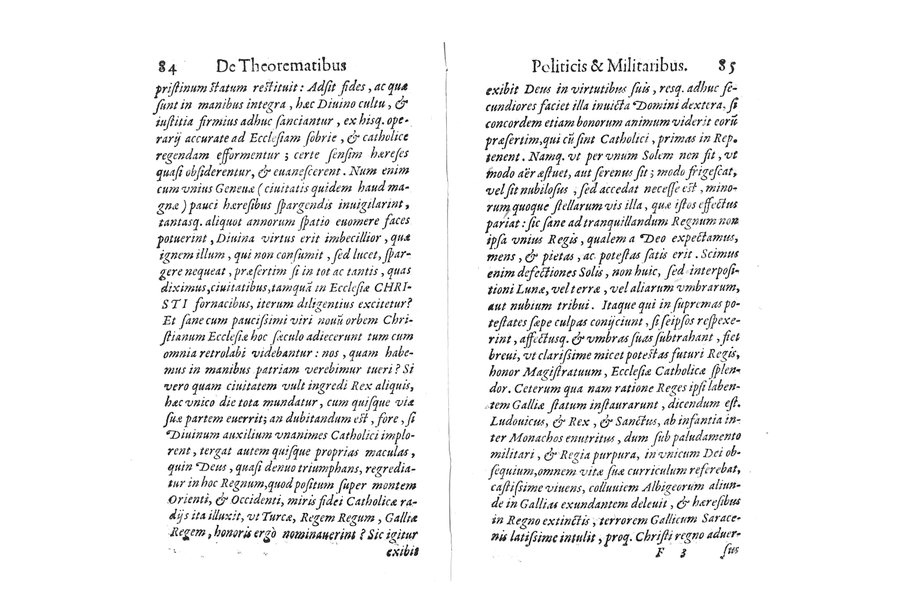 84 De Theorematibus
priſtinum ſtatum reſtituit : Adſit fides, ac quæ
ſunt in manibus integra, hæc Diuino cultu, &
iuſtitia firmius adhuc ſanciantur, ex hisq. ope-
rarij accurate ad Eccleſiam ſobrie, & catholice
regendam efformentur ; certe ſenſim hæreſes
quaſi obſiderentur, & euaneſcerent. Num enim
cum vnius Geneuæ (ciuitatis quidem haud ma-
gnæ) pauci hæreſibus ſpargendis inuigilarint,
tantasq. aliquot annorum ſpatio euomere faces
potuerint, Diuina virtus erit imbecillior, quæ
ignem illum, qui non conſumit, ſed lucet, ſpar-
gere nequeat, præſertim ſi in tot ac tantis, quas
diximus,ciuitatibus,tamquã in Eccleſiæ CHRI-
STI fornacibus, iterum diligentius excitetur?
Et ſane cum pauciſſimi viri nouũ orbem Chri-
ſtianum Eccleſiæ hoc ſæculo adiecerunt tum cum
omnia retrolabi videbantur : nos, quam habe-
mus in manibus patriam verebimur tueri? Si
vero quam ciuitatem vult ingredi Rex aliquis,
hæc vnico die tota mundatur, cum quiſque viæ
ſuæ partem euerrit; an dubitandum eſt, fore, ſi
Diuinum auxilium vnanimes Catholici implo-
rent, tergat autem quiſque proprias maculas,
quin Deus, quaſi denuo triumphans, regredia-
tur in hoc Regnum,quod poſitum ſuper montem
Orienti, & Occidenti, miris fidei Catholicæ ra-
dijs ita illuxit, vt Turcæ, Regem Regum, Galliæ
Regem, honoris ergò nominauerint? Sic igitur
exibit
Politicis & Militaribus. 85
exibit Deus in virtutibus ſuis, resq. adhuc fe-
cundiores faciet illa inuicta Domini dextera, ſi
concordem etiam bonorum animum viderit corũ
præſertim,qui cũ ſint Catholici, primas in Rep.
tenent. Namq. vt per vnum Solem non fit, vt
modo aër æſtuet, aut ſerenus ſit; modo frigeſcat,
vel ſit nubiloſus, ſed accedat neceſſe eſt, mino-
rum quoque ſtellarum vis illa, quæ iſtos effectus
pariat : ſic ſane ad tranquillandum Regnum non
ipſa vnius Regis, qualem a Deo expectamus,
mens, & pietas, ac poteſtas ſatis erit. Scimus
enim defectiones Solis, non huic, ſed interpoſi-
tioni Lunæ, vel terræ, vel aliarum vmbrarum,
aut nubium tribui. Itaque qui in ſupremas po-
teſtates ſæpe culpas conijciunt, ſi ſeipſos reſpexe-
rint, affectusq. & vmbras ſuas ſubtrahant, fiet
breui, vt clariſſime micet poteſtas futuri Regis,
honor Magiſtratuum, Eccleſiæ Catholicæ ſplen-
dor. Ceterum qua nam ratione Reges ipſi laben-
tem Galliæ ſtatum inſtaurarunt, dicendum eſt.
Ludouicus, & Rex, & Sanctus, ab infantia in-
ter Monachos enutritus, dum ſub paludamento
militari, & Regia purpura, in vnicum Dei ob-
ſequium,omnem vitæ ſuæ curriculum referebat,
caſtiſſime viuens, colluuiem Albigeorum aliun-
de in Gallias exundantem deleuit, & hæreſibus
in Regno extinctis, terrorem Gallicum Sarace-
nis latiſſime intulit, proq. Chriſti regno aduer-
F 3 ſus